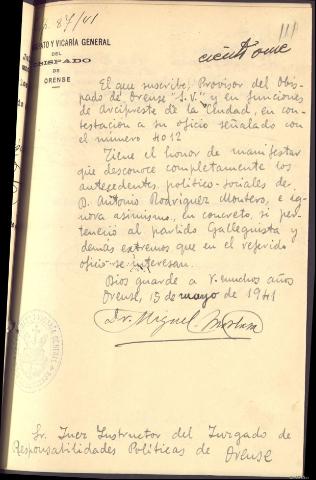 87/41
111
ciento once
PROVISORATO Y VICARÍA GENERAL
DEL
OBISPADO
DE
ORENSE
El que suscribe, Provisor del Obis-
pado de Orense "S.V." y en funciones
de arcipreste de la Ciudad, en con-
testación a su oficio señalado con
el número 4012
Tiene el honor de manifestar
que desconoce completamente los
antecedentes politico-sociales de
D. Antonio Rodriguez Montero, e ig-
nora asimismo, en concreto, si per-
teneció al partido Galleguista y
demás extremos que en el referido
oficio se interesan.
Dios guarde a V. muchos años
Orense, 15 de mayo de 1941
Dr. Miguel
Sr. Juez Instructor del Juzgado de
Responsabilidades Políticas de Orense